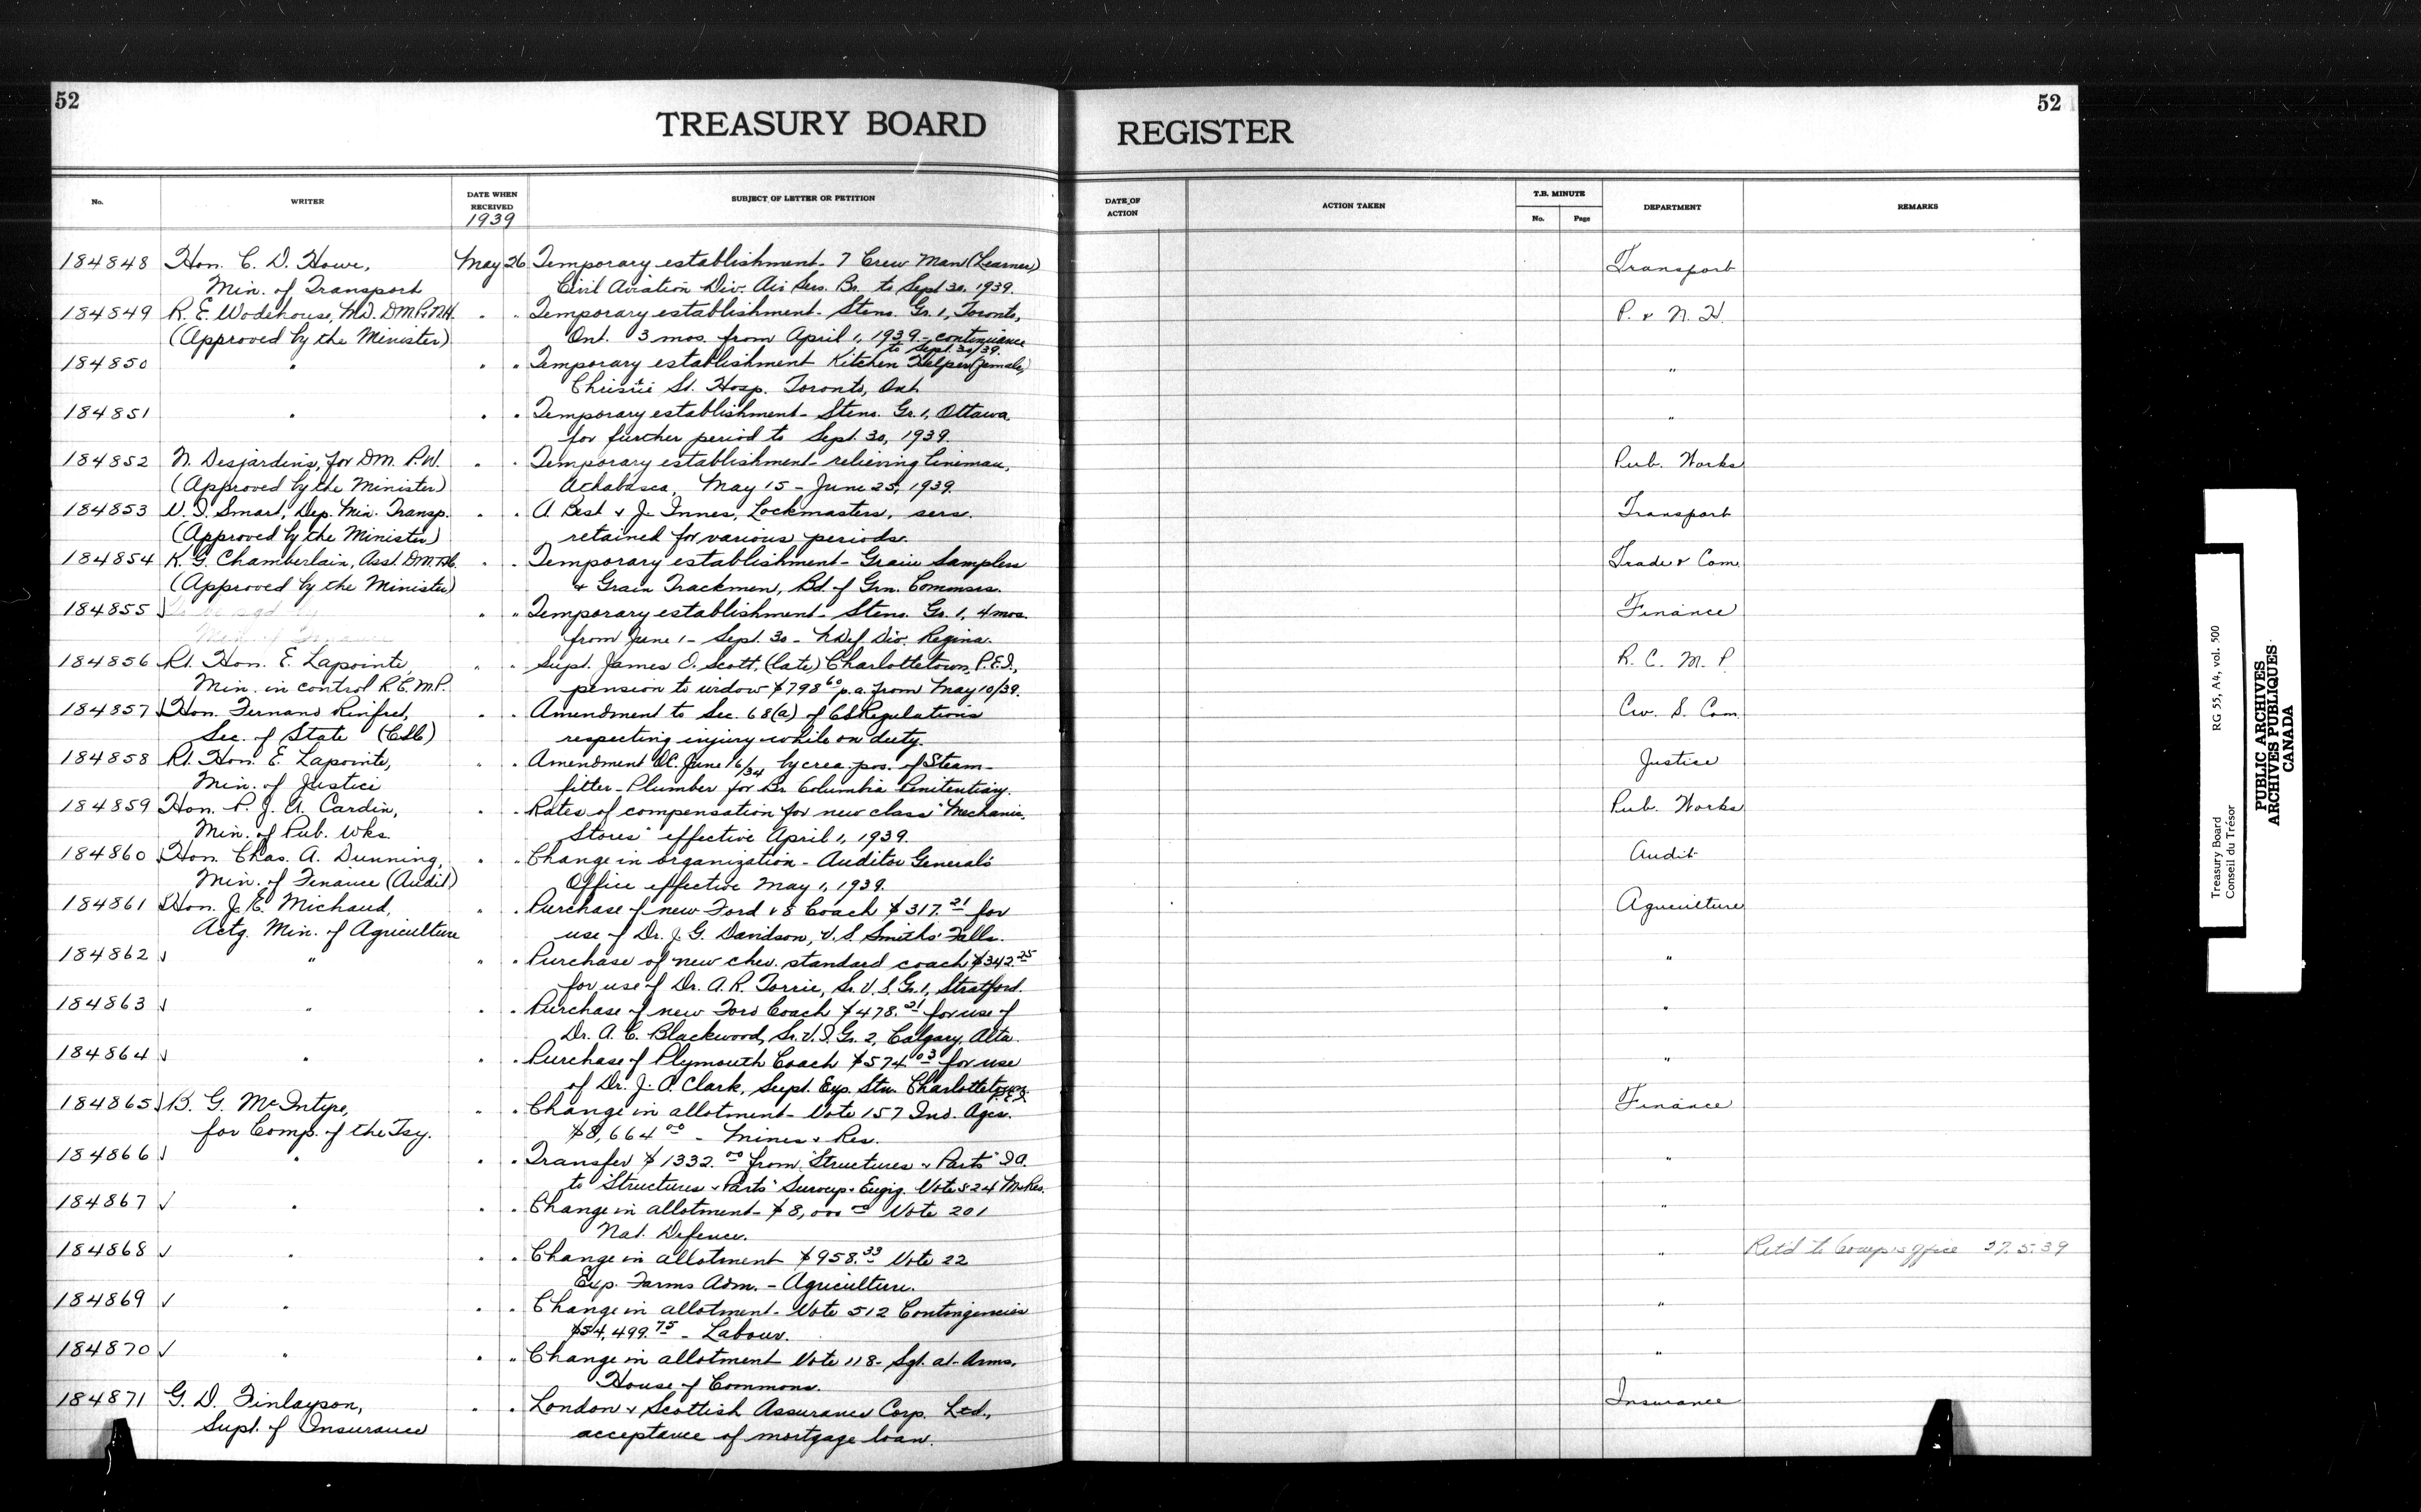 52
52
TREASURY BOARD
REGISTER
No.
WRITER
DATE WHEN RECEIVED
1939
SUBJECT OF LETTER OR PETITION
DATE OF ACTION
ACTION TAKEN
T.B. MINUTE
No.
Page
DEPARTMENT
REMARKS
184848 Hon. C. D. Howe, May 26 Temporary establishment - 7 Crew Man (Learner) Transport
Min. of Transport Civil Aviation Div. Air Serv. Br. to Sept 30, 1939.
184849 R. E. Wodehouse, MD. DM.P.&N.H. " " Temporary establishment - Steno. Gr. 1, Toronto, P. & N. H.
(Approved by the Minister) Ont. 3 mos. from April 1, 1939 - continuance
to Sept. 30/39.
184850 " " " Temporary establishment Kitchen Helper (female) "
Christie St. Hosp. Toronto, Ont
184851 " " " Temporary establishment - Steno. Gr. 1, Ottawa "
for further period to Sept. 30, 1939.
184852 N. Desjardins, for DM. P.W. " " Temporary establishment - relieving lineman, Pub. Works
(Approved by the Minister) Athabasca, May 15 - June 25, 1939.
184853 V. I. Smart, Dep. Min. Transp. " " A. Best & J. Innes, Lockmasters, servs. Transport
(Approved by the Minister) retained for various periods.
184854 K. G. Chamberlain, Asst. DM. " " Temporary establishment - Grain Samplers Trade & Com.
(Approved by the Minister) & Grain Trackmen, Bd. of Grn. Commsrs.
184855 To be sgd by " " Temporary establishment - Steno. Gr. 1, 4 mos. Finance
Min. of Finance from June 1 - Sept. 30 - N.Def. Div. Regina.
184856 Rt. Hon. E. Lapointe, " " Supt. James D. Scott, (late) Charlottetown, P.E.I., R. C. M. P.
Min. in control R.C.M.P. pension to widow $798.60 p.a. from May 10/39.
184857 √ Hon. Fernand Rinfret, " " Amendment to Sec. 68(a) of CS Regulations Civ. S. Com.
Sec. of State (CSC) respecting injury while on duty.
184858 Rt. Hon. E. Lapointe, " " Amendment OC. June 16/34 by crea. pos. of Steam- Justice
Min. of Justice fitter-Plumber for Br. Columbia Penitentiary.
184859 Hon. P. J. A. Cardin, " " Rates of compensation for new class "Mechanic, Pub. Works
Min. of Pub. Wks. Stores" effective April 1, 1939.
184860 Hon. Chas. A. Dunning, " " Change in organization - Auditor General's Audit
Min. of Finance (Audit) Office effective May 1, 1939.
184861 √ Hon. J. E. Michaud, " " Purchase of new Ford V8 Coach $317.21 for Agriculture
Actg. Min. of Agriculture use of Dr. J. G. Davidson, V.S. Smiths Falls.
184862 √ " " " Purchase of new chev. standard coach $342.25 "
for use of Dr. A. R. Torrie, Sr. V.S. Gr. 1, Stratford.
184863 √ " " " Purchase of new Ford Coach $478.21 for use of "
Dr. A. C. Blackwood, Sr. V.S. Gr. 2, Calgary, Alta.
184864 √ " " " Purchase of Plymouth Coach $574.03 for use "
of Dr. J. A. Clark, Supt. Exp. Stn. Charlottetown P.E.I.
184865 √ B. G. McIntyre, " " Change in allotment - Vote 157 Ind. Agcs. Finance
for Comp. of the Tsy. $8,664.00 - Mines & Res.
184866 √ " " " Transfer $1332.00 from "Structures & Parts" I.A. "
to "Structures & Parts" Surveys & Engig. Vote 524 M&Res.
184867 √ " " " Change in allotment - $8,000.00 Vote 201 "
Nat. Defence.
184868 √ " " " Change in allotment $958.33 Vote 22 " Ret'd to Comp's office 27.5.39
Exp. Farms Adm. - Agriculture.
184869 √ " " " Change in allotment - Vote 512 Contingencies "
$54,499.75 - Labour.
184870 √ " " " Change in allotment Vote 118 - Sgt. at-Arms, "
House of Commons.
184871 G. D. Finlayson, " " London & Scottish Assurance Corp. Ltd., Insurance
Supt. of Insurance acceptance of mortgage loan.
Treasury Board
Conseil du Trésor
RG 55, A4, vol. 500
PUBLIC ARCHIVES
ARCHIVES PUBLIQUES
CANADA